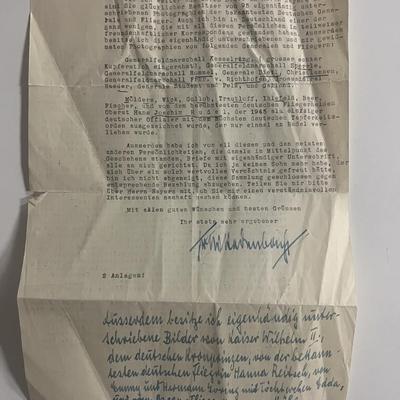 sind die glücklichen Besitzer von eigenhändig unter-
schriebenen Photographien der bekanntesten Deutschen Genera-
le und Flieger. Auch bin ich in Deutschland einer der
ganz wenigen, die mit all diesen Persönlichkeiten in teilweiser
freundschaftlicher Korrespondenz gestanden haben.
besitze ich die eigenhändig unterschriebenen mir gewid-
meten Photographien von folgenden Generalen und Fliegern:
Generalfeldmarschall Kesselring
Kupferstich eingerahmt, Generalfeldmarschall Sperrle,
Generalfeldmarschall Rommel, Generale Christiansen,
Generalfeldmarschall Frh. v. Richthofen, Grossadmiral
Raeder, Generale Student und Galland.
Mölders, Wick, Gollob, Trautloft, Ihlefeld, Baer,
Fischer, und von dem bekanntesten deutschen Fliegerhelden
Oberst Hans Joachim Rudel, der 1944 als einziger
deutscher Offizier mit dem höchsten deutschen Tapferkeits-
orden ausgezeichnet wurde, der nur einmal an Rudel ver-
liehen wurde.
Ausserdem habe ich von all diesen und den meisten
anderen Persönlichkeiten, die damals im Mittelpunkt des
Geschehens standen, Briefe mit eigenhändiger Unterschrift,
alle an mich gerichtet. Da ich ja keinen Sohn mehr habe, der
sich über ein solch wertvolles Vermächtnis gefreut hätte,
bin ich nicht abgeneigt, diese Sammlung geschlossen gegen
entsprechende Bezahlung abzugeben. Teilen Sie mir bitte
über Herrn mit, ob Sie mir einen verständnisvollen
Interessenten namhaft machen können.
Mit allen guten Wünschen und besten Grüssen
Ihr stets sehr ergebener
2 Anlagen!
Ausserdem besitze ich eigenhändig unter-
schriebene Bilder von Kaiser Wilhelm II.,
dem deutschen Kronprinzen, von der bekann-
testen deutschen Fliegerin Hanna Reitsch, von
Emmy und Hermann Göring mit Töchterchen Edda,